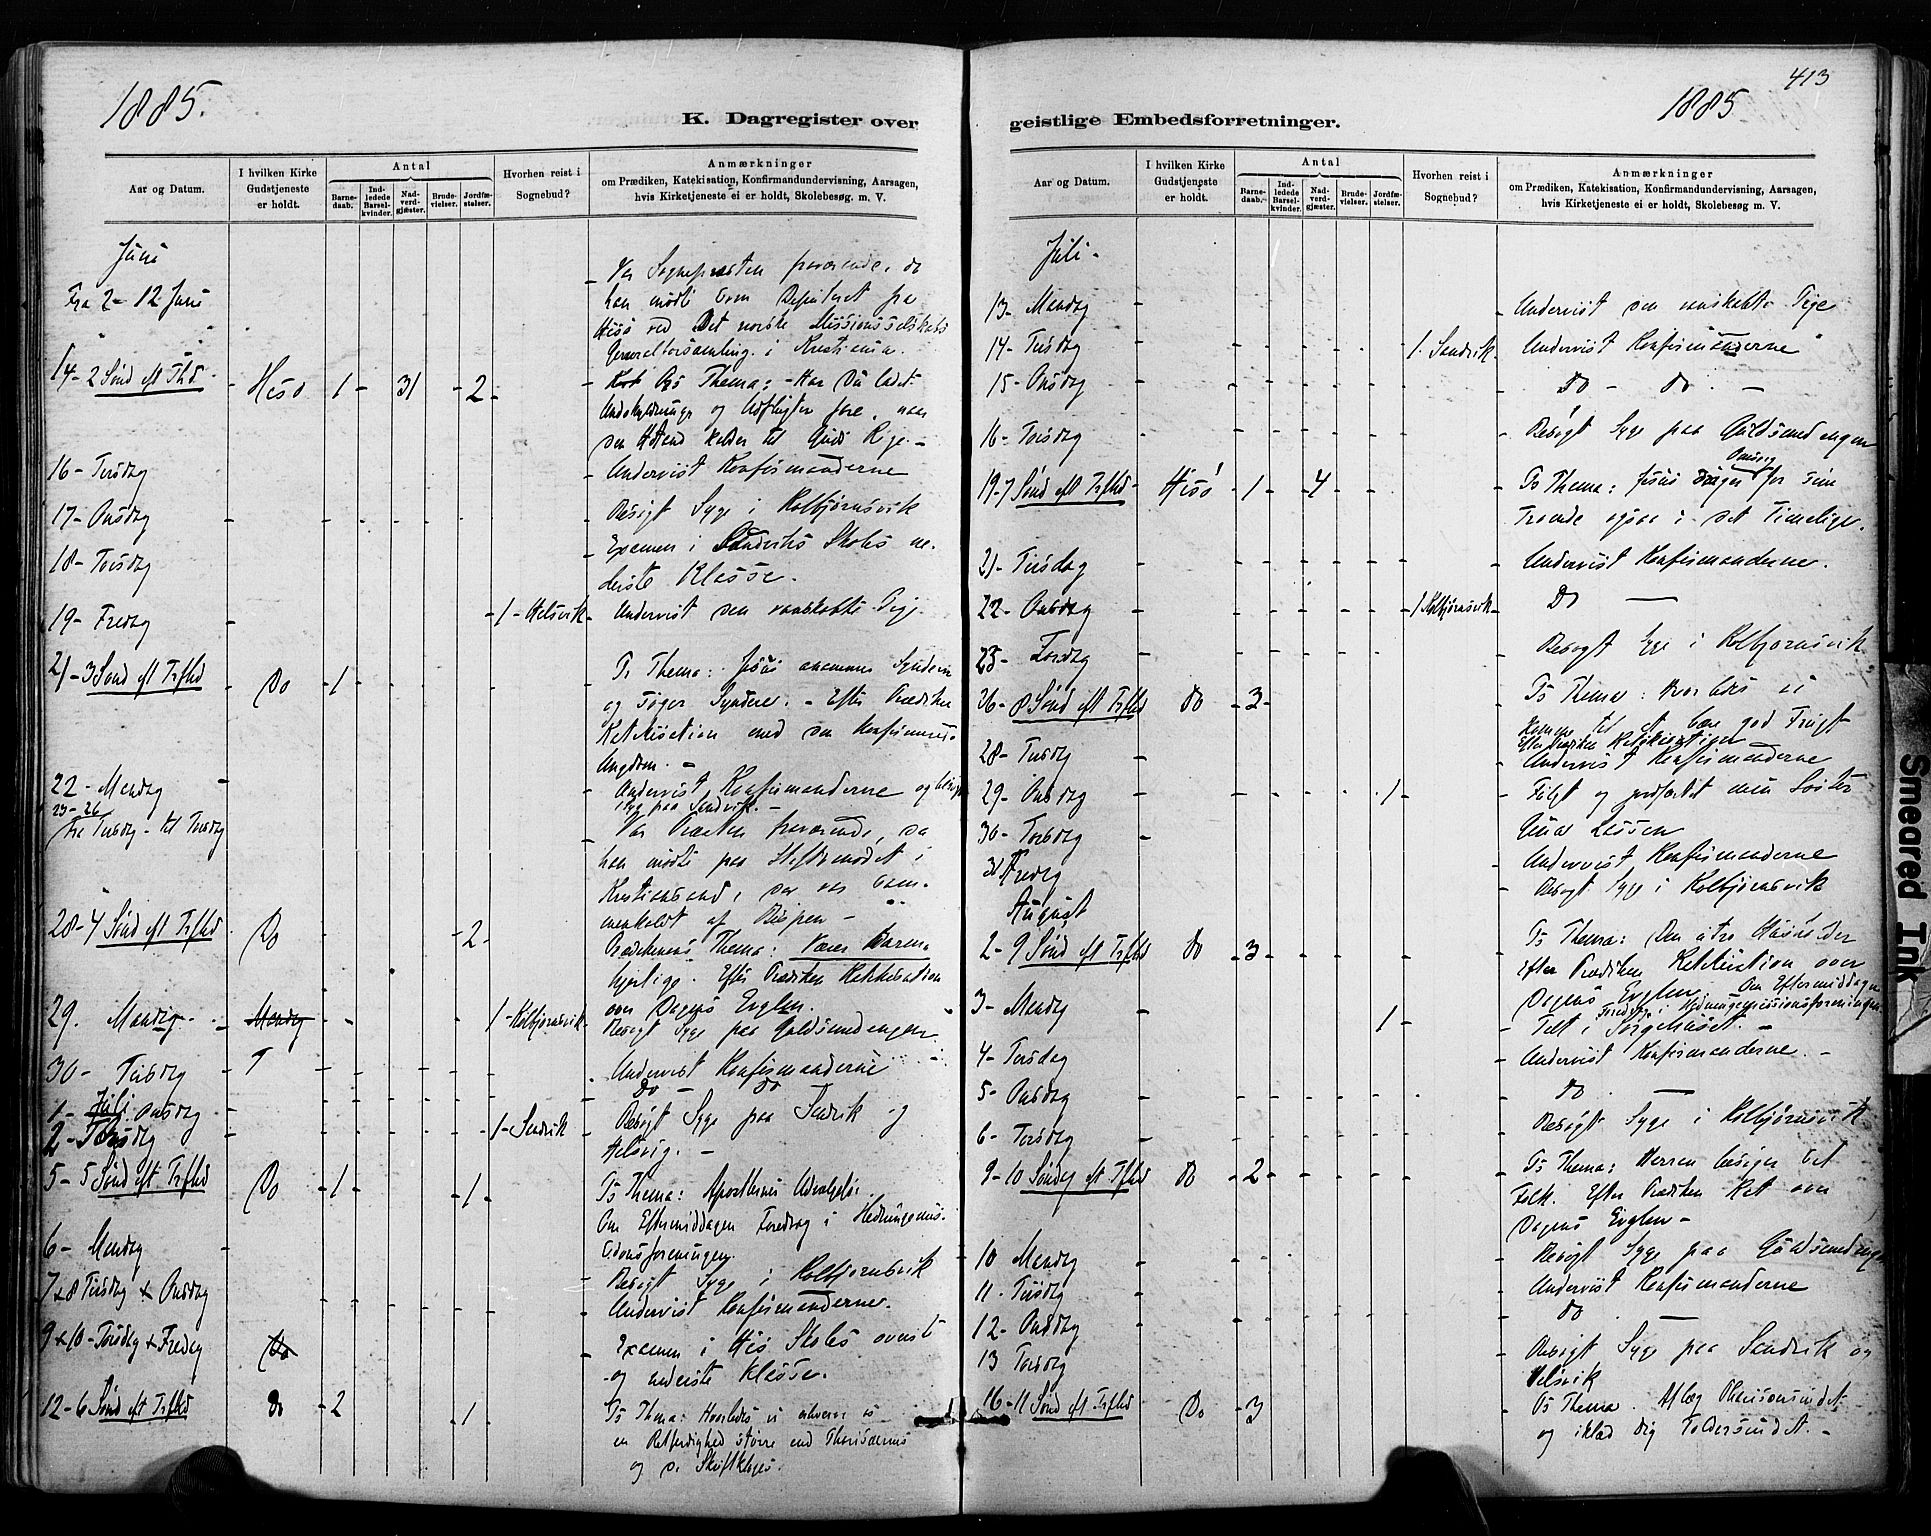 1885.
K. Dagregister over
Aar og Datum.
I hvilken Kirke
Gudstjeneste
er holdt.
Antal
Barne-
daab.
Ind-
ledede
Barsel-
kvinder.
Nad-
verd-
gjæster.
Brude-
vielser.
Jordfæ-
stelser.
Hvorhen reist i
Sognebud?
Anmærkninger
om Prædiken, Katekisation, Konfirmandundervisning, Aarsagen,
hvis Kirketjeneste ei er holdt, Skolebesøg. m. V.
Juni
Fra 2 - 12 Juni
Var Sognepresten fraværende, da
han mødte som Deputeret fra
Hisø ved Det norske Missionsselskabs
Generalforsamling i Kristiania.
14 - 2 Sønd eft Tfld - Hisø - 1 - 31 - 2 -
Thema: - Har Du ladet
Undskyldninger og Udflugter fare, naar
den Herre kalder til Guds Rige. -
16 - Tirsdag
Undervist Konfirmanderne
17 - Onsdag
Besøgt Syge i Kolbjørnsvik
18 - Torsdag
Examen i Sandviks Skoles ne-
derste Klasse.
19 - Fredag
1 - Helsvik
Undervist den vanskabte Pige.
21 - 3 Sønd eft Trfld - Do - 1
Ps Thema: Jesus annammer Syndere
og søger Syndere. - Efter Prædiken
Katekisation med den konfirmerede
Ungdom. -
22 - Mandag
Undervist Konfirmanderne og besøgt
Syge paa Sandvik. -
23 - 26
Fra Tirsdag - til Tirsdag
Var Præsten fraværende, da
han mødte paa Stiftsmødet i
Kristiansand, der var sam-
menkaldt af Bispen -
28 - 4 Sønd eft Trfld - Do - 2 -
Prædikenens Thema: Værer Barm-
hjertige. Efter Prædiken Katekisation
over Dagens Evglm.
29. Mandag - Mandag
1 - Kolbjørnsvik
Besøgt Syge paa Guldsmedengen
30 - Tirsdag T
Undervist Konfirmanderne
1 - Juli Onsdag
Do - Do
2 - Torsdag
1 - Sandvik
Besøgt Syge paa Sandvik og
Helsvig. -
5 - 5 Sønd eft Trfld - Do - 1 - 1
Ps Thema: Apostlenes Udvælgelse.
Om Eftermiddagen Foredrag i Hedningemis-
sionsforeningen.
6 - Mandag
Besøgt Syge i Kolbjørnsvik
7 & 8 Tirsdag & Onsdag
Undervist Konfirmanderne.
9 & 10 - Torsdag & Fredag Do
Examen i Hisø Skoles øverste
og nederste Klasse.
12 - 6 Sønd eft Trfld Do 2 - 1
Ps Thema: Hvorledes vi erhverve os
en Retfærdighed større end Pharisæernes
og de Skriftkloges.
413
1885
geistlige Embedsforretninger.
Aar og Datum.
I hvilken Kirke
Gudstjeneste
er holdt.
Antal
Barne-
daab.
Ind-
ledede
Barsel-
kvinder.
Nad-
verd-
gjæster.
Brude-
vielser.
Jordfæ-
stelser.
Hvorhen reist i
Sognebud?
Anmærkninger
om Prædiken, Katekisation, Konfirmandundervisning, Aarsagen,
hvis Kirketjeneste ei er holdt, Skolebesøg m. V.
Juli -
13 - Mandag
Undervist den vanskabte Pige
14 - Tirsdag
1. Sandvik
Undervist Konfirmanderne
15 - Onsdag
Do - Do. -
16 - Torsdag
Besøgt Syge paa Guldsmedengen
19 - 7 Sønd eft Trfld - Hisø - 1 - 4 -
Ps Thema: Jesus Omsorg for sine
Troende ogsaa i det Timelige.
21 - Tirsdag
Undervist Konfirmanderne.
22 - Onsdag
1 Kolbjørnsvik
Do -
23 - Torsdag
Besøgt Syge i Kolbjørnsvik
26 - 8 Sønd eft Trfld Do - 3 -
Ps Thema: Hvorledes vi
komme til at bære god Frugt
Efter Prædiken Katekisation
28 - Tirsdag
Undervist Konfirmanderne
29 - Onsdag
1
Fulgt og jordfæstet min Søster
Lassen
30 - Torsdag
Undervist Konfirmanderne
31 Fredag
Besøgt Syge i Kolbjørnsvik
August
2 - 9 Sønd eft Trfld Do - 3 -
Ps Thema: Den utro Husholder
Efter Prædiken Katekisation over
Dagens Evglm. Om Eftermiddagen
Foredrag i Hedningemissionsforeningen.
3 - Mandag
1
Talt i Sørgehuset. -
4 - Tirsdag
Undervist Konfirmanderne. -
5 - Onsdag
Do. -
6 - Torsdag
Besøgt Syge i Kolbjørnsvik
9 - 10 Søndag eft Trfld Do - 2 -
Ps Thema: Herren besøger sit
Folk. Efter Prædiken Kat over
Dagens Evglm -
10 Mandag
Besøgt Syge paa Guldsmedengen
11. Tirsdag
Undervist Konfirmanderne
12 - Onsdag
Do -
13 Torsdag
Besøgt Syge paa Sandvik og
Helsvik
16 - 11 Sønd eft Trfld Do - 3
Ps Thema. Aflæg Pharisæersindet
og iklæd dig Toldersindet. -
Smeared Ink